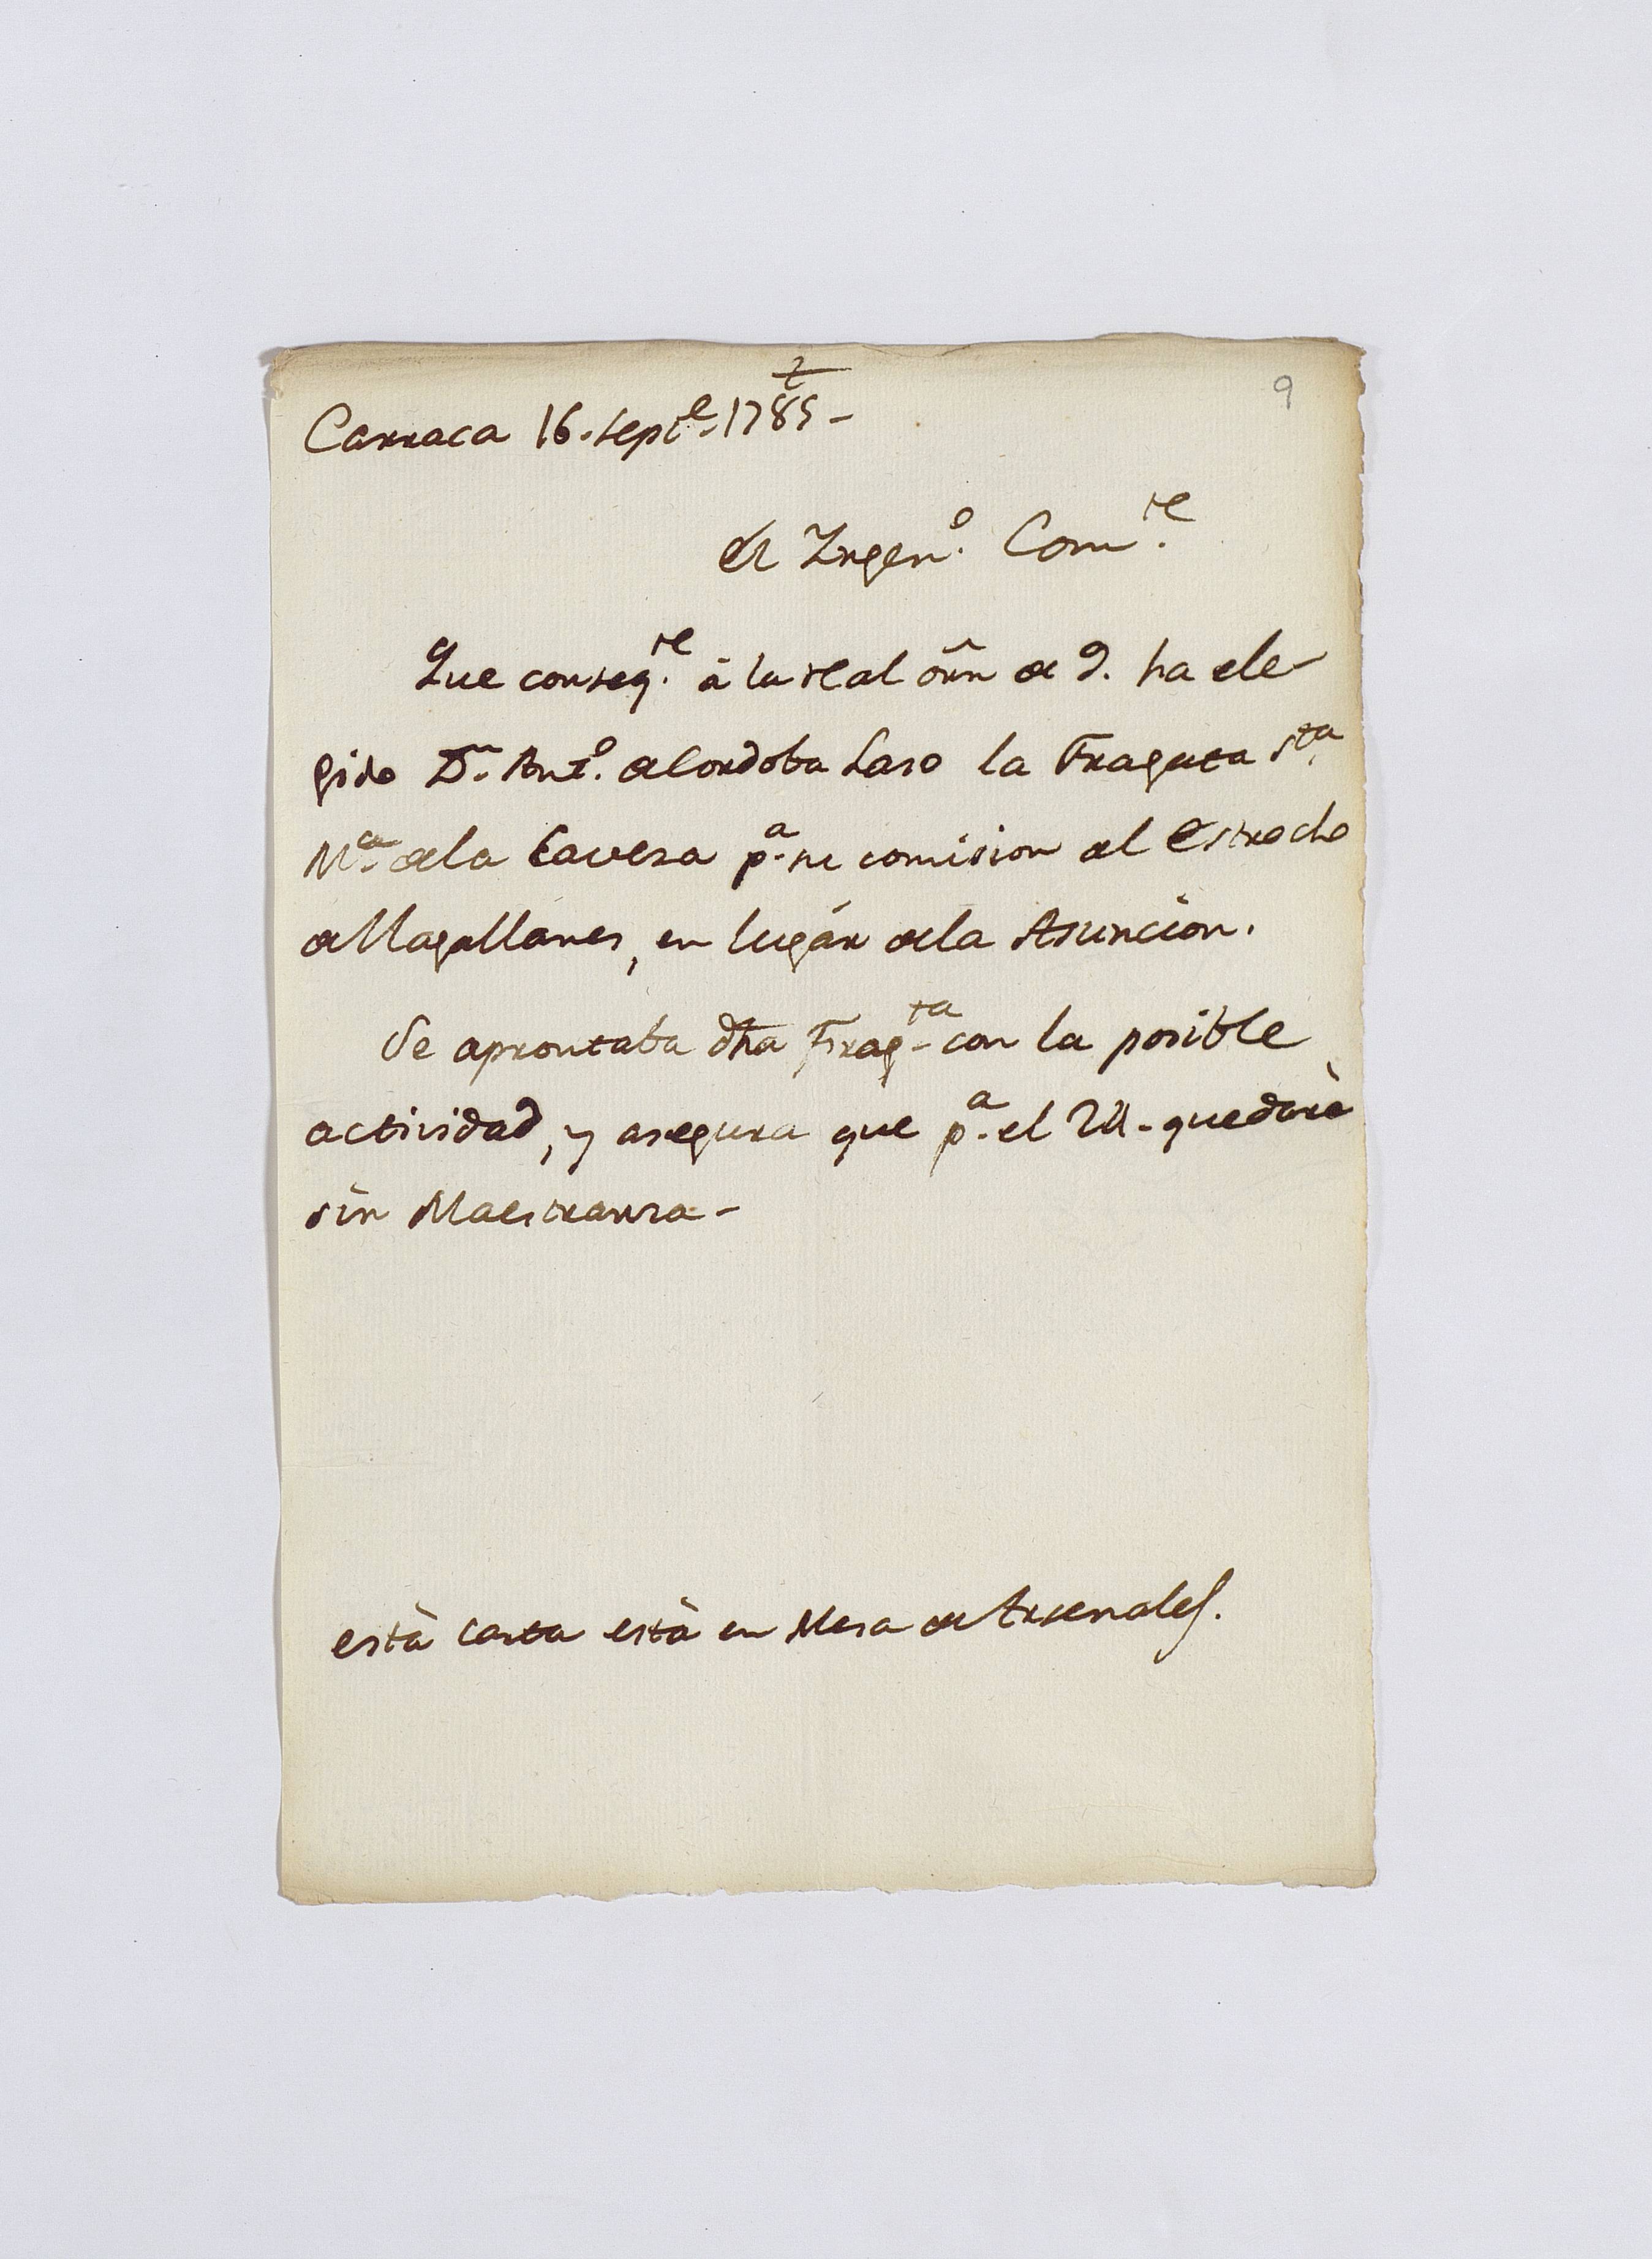 2
9
Carraca 16. Septe. 1785-
el Ingeno. Comte.
Que conseqte. à la real orñ de 9. ha ele-
gido Dn. Anto. de Cordoba Laso la Fragata Sta.
Ma. de la Caveza pa. su comision al Estrecho
de Magallanes, en lugár de la Asuncion.
Se aprontaba dha Fragta- con la posible
actividad, y asegura que pa. el 24- quedarà
sin Maestranza-
està carta està en Mesa de Arsenales.